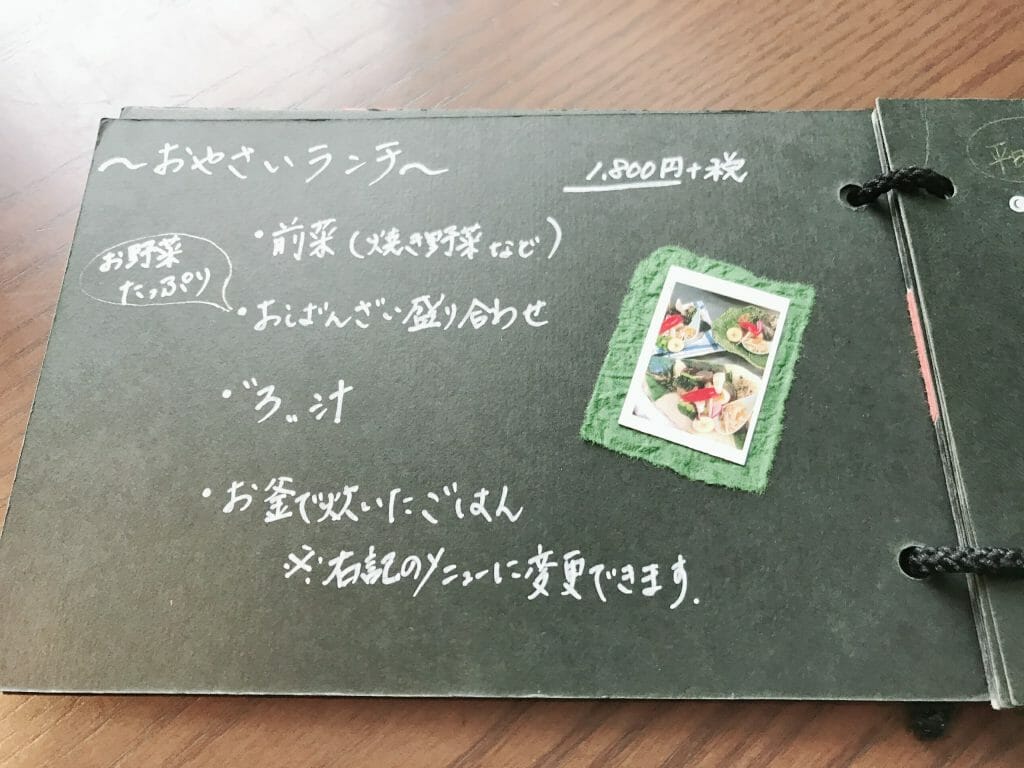 ～おやさいランチ～
1,800円+税
お野菜
たっぷり
・前菜(焼き野菜など)
・おばんざい盛り合わせ
汁
・お釜で炊いたごはん
※右記のメニューに変更できます.
平